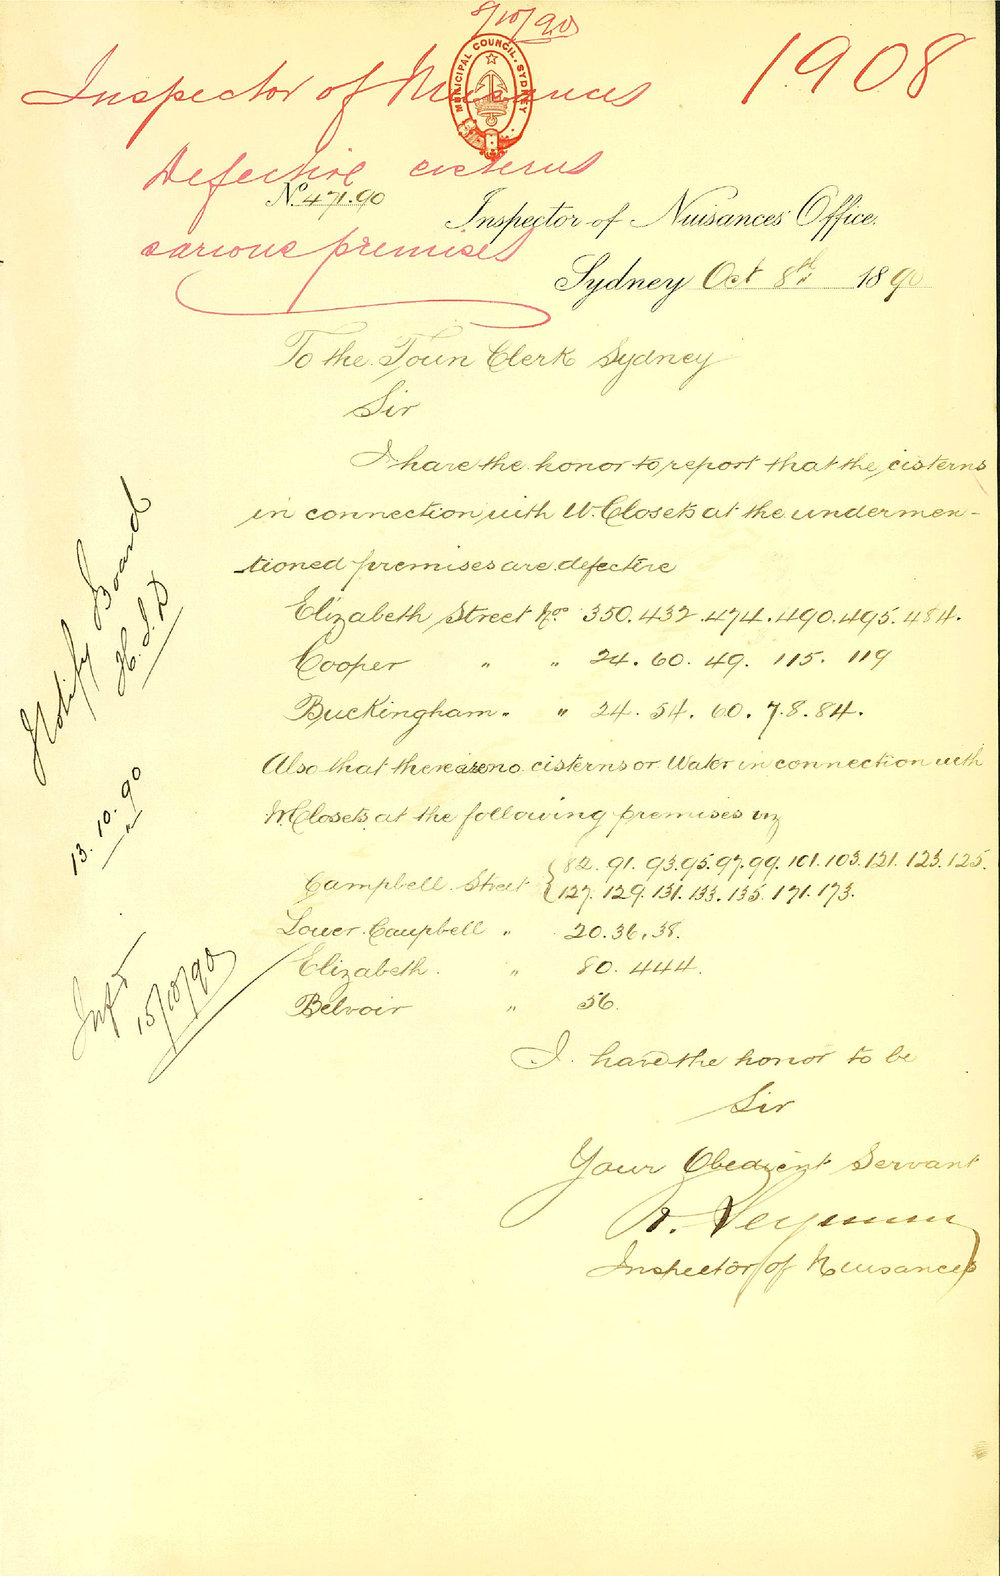 8/10/90
Inspector of Nuisances
1908
MUNICIPAL COUNCIL, SYDNEY
Defective cisterns
No. 471.90
Inspector of Nuisances Office.
various premises
Sydney Oct 8th 1890
To the Town Clerk Sydney
Sir
I have the honor to report that the cisterns
in connection with W. Closets at the undermen-
tioned premises are defective
Elizabeth Street Nos 350. 432. 474. 490. 495. 484.
Cooper " " 24. 60. 49. 115. 119
Buckingham " " 24. 54. 60. 7. 8. 84.
Also that there are no cisterns or Water in connection with
W. Closets at the following premises viz
Campbell Street { 82. 91. 93. 95. 97. 99. 101. 103. 121. 123. 125.
127. 129. 131. 133. 135. 171. 173.
Lower Campbell " 20. 36. 38.
Elizabeth " 80. 444.
Belvoir " 56.
I have the honor to be
Sir
Your Obedient Servant
R. Seymour
Inspector of Nuisances
Notify Board
H.S.D
13.10.90
15/10/90